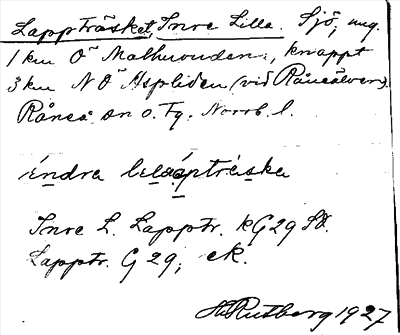 Lappträsket, Inre Lilla. Sjö, ung.
1 km Ö Malhuvuden, knappt
3 km NÖ Aspliden (vid Råneälven).
Råneå sn o. Tg. Norrb. l.
Inre L. Lapptr. KG 29 SV.
Lapptr. G 29; ek.
H. Rutberg 1927